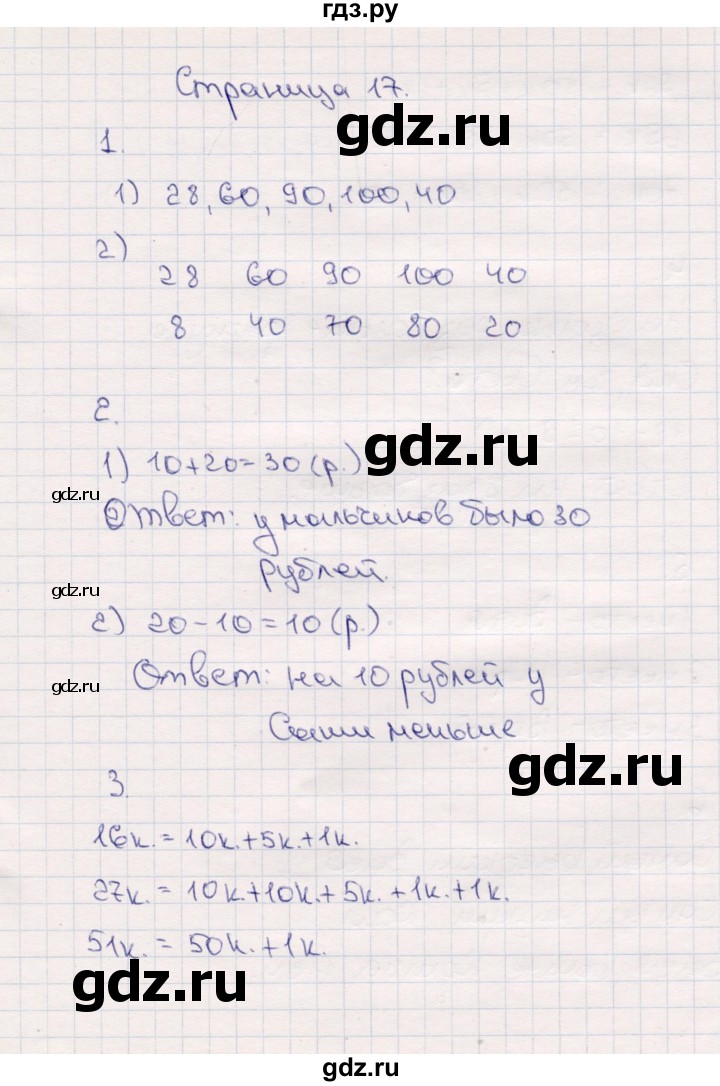 гдз.ру
Страница 17.
gdz.ru
1.
1) 28, 60, 90, 100, 40
2)
28 60 90 100 40
8 40 70 80 20
2.
gdz.ru
1) 10+20=30 (р.)
gdz.ru
Ответ: у мальчиков было 30
рублей.
gdz.ru
2) 20-10=10 (р.)
Ответ: на 10 рублей у
gdz.ru
Саши меньше
gdz.ru
3.
16к. = 10к.+5к.+1к.
27к. = 10к.+10к.+5к.+1к.+1к.
51к. = 50к.+1к.
gdz.ru
gdz.ru